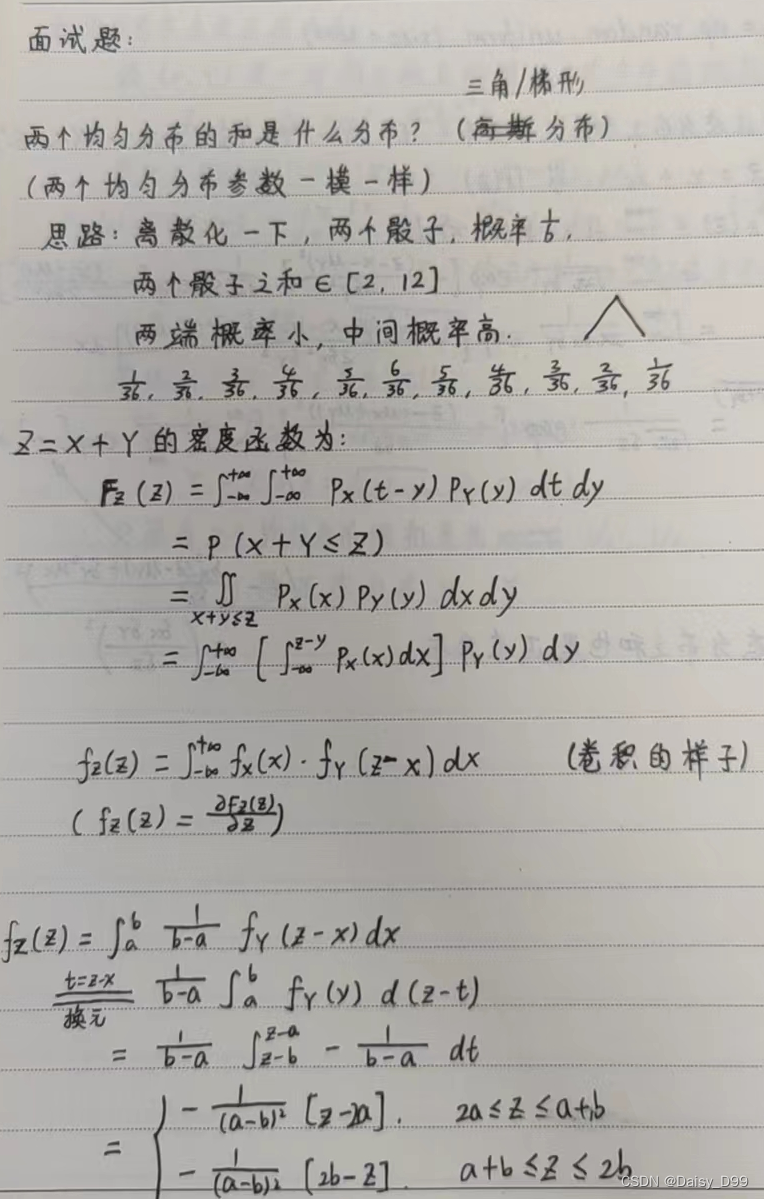 面试题：
三角/梯形
两个均匀分布的和是什么分布？（高斯分布）
（两个均匀分布参数一模一样）
思路：离散化一下，两个骰子，概率 1/6，
两个骰子之和∈[2, 12]
两端概率小，中间概率高．
1/36, 2/36, 3/36, 4/36, 5/36, 6/36, 5/36, 4/36, 3/36, 2/36, 1/36
Z=X+Y 的密度函数为：
F_Z(z) = ∫_{-∞}^{+∞} ∫_{-∞}^{+∞} P_X(t-y) P_Y(y) dt dy
= P(X+Y≤Z)
= ∬_{x+y≤z} P_X(x) P_Y(y) dx dy
= ∫_{-∞}^{+∞} [∫_{-∞}^{z-y} P_X(x) dx] P_Y(y) dy
f_Z(z) = ∫_{-∞}^{+∞} f_X(x)·f_Y(z-x) dx （卷积的样子）
( f_Z(z) = ∂F_Z(z)/∂z )
f_Z(z) = ∫_a^b 1/(b-a) f_Y(z-x) dx
t=z-x 换元 1/(b-a) ∫_a^b f_Y(y) d(z-t)
= 1/(b-a) ∫_{z-b}^{z-a} - 1/(b-a) dt
= { - 1/(a-b)² [z-2a]. 2a≤z≤a+b
- 1/(a-b)² [2b-z]. a+b≤z≤2b
CSDN @Daisy_D99